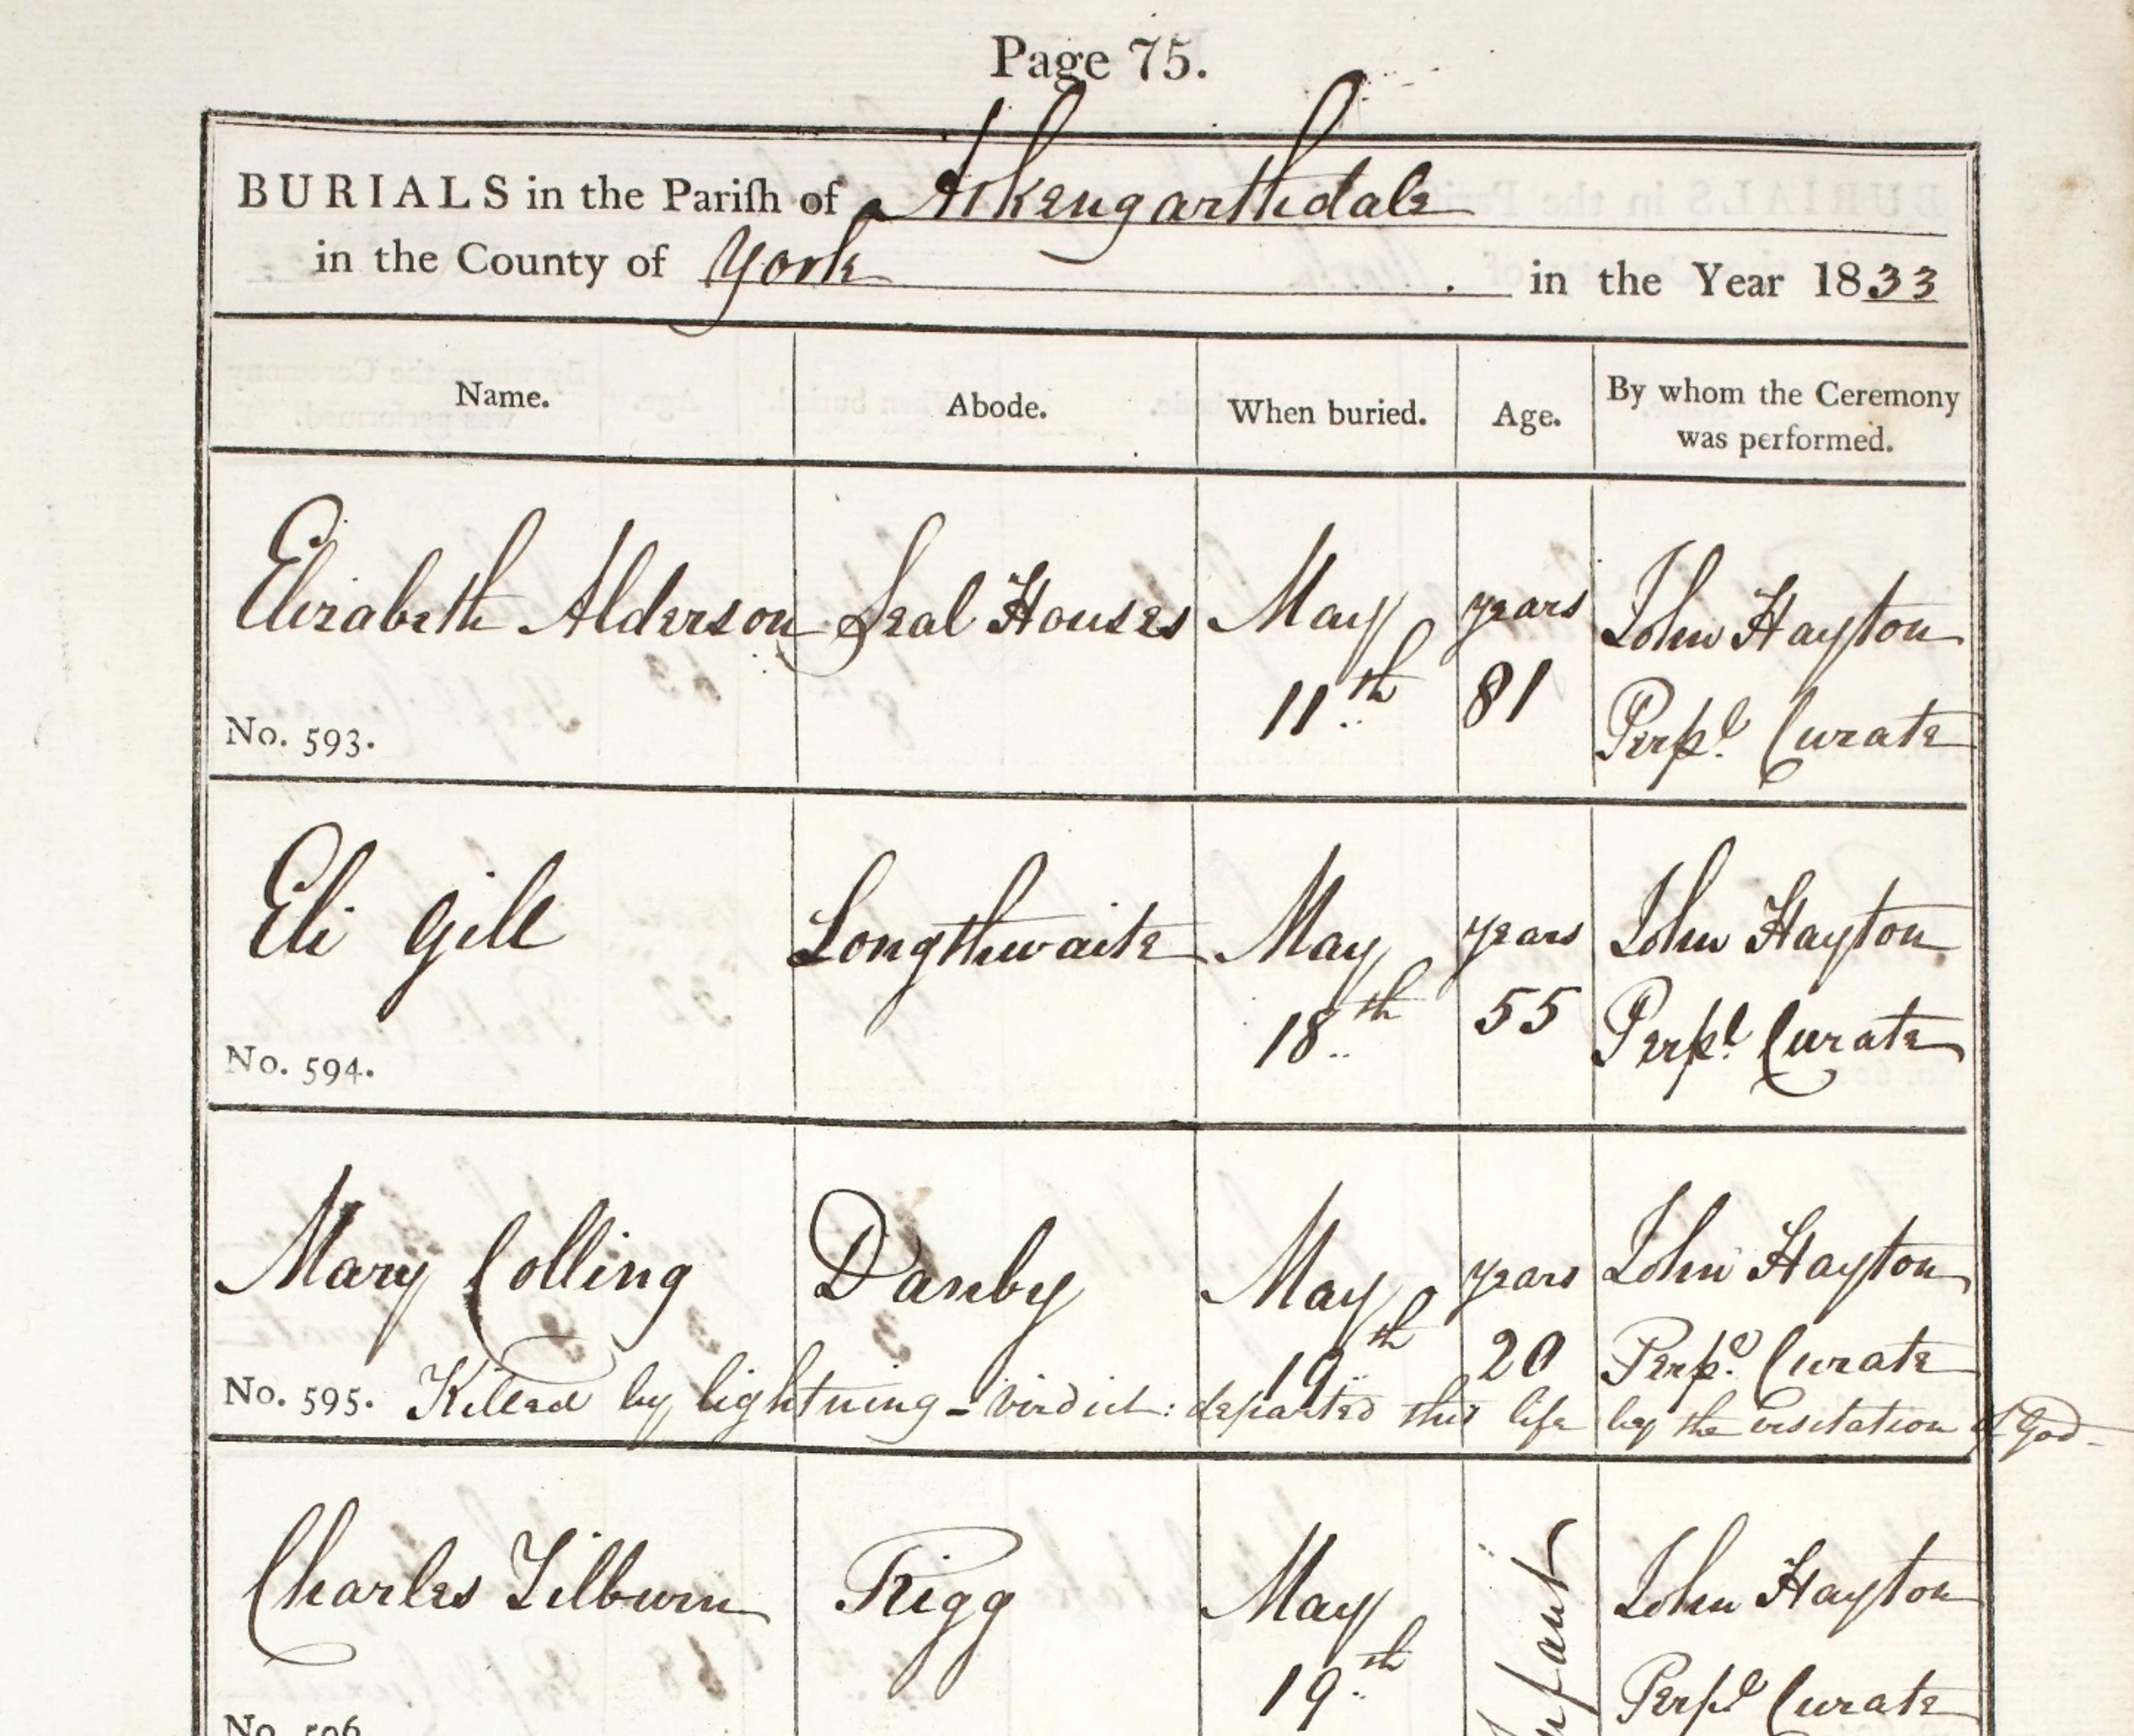 Page 75.
BURIALS in the Pariſh of Arkengarthdale
in the County of York in the Year 1833
Name. Abode. When buried. Age. By whom the Ceremony was performed.
Elizabeth Alderson Seal Houses May years John Hayton
11th 81 Perpl. Curate
No. 593.
Eli Gill Longthwaite May years John Hayton
18th 55 Perpl. Curate
No. 594.
Mary Colling Danby May years John Hayton
19th 20 Perpl. Curate
No. 595. Killed by lightning - virdict: departed this life by the visitation of God-
Charles Tilburn Rigg May Infant John Hayton
19th Perpl Curate
No. 596